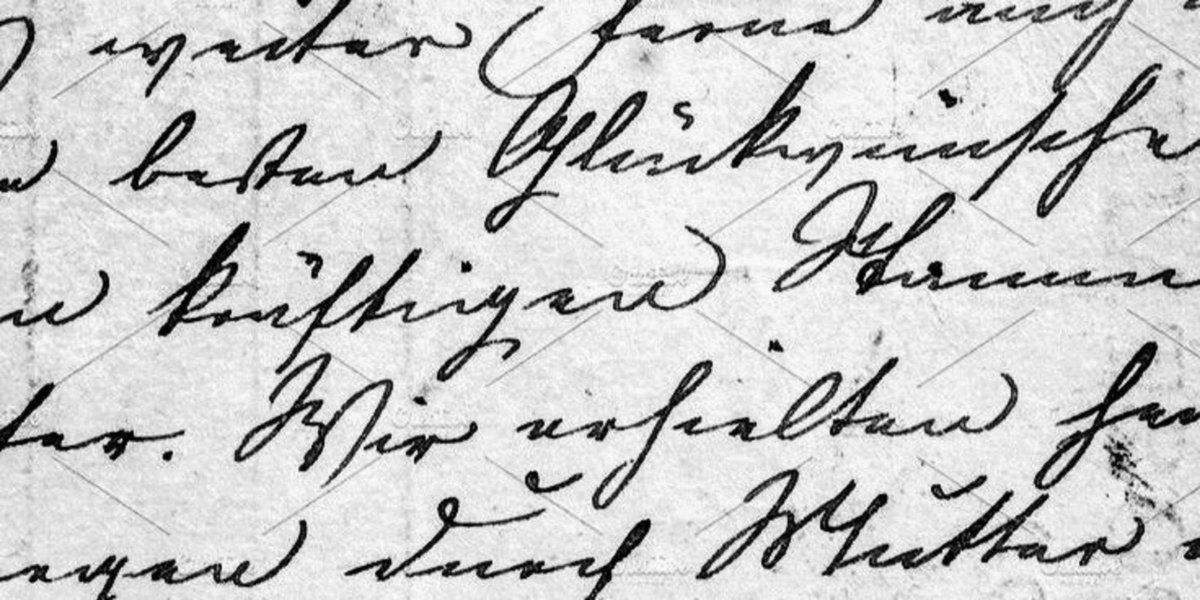 weiter ferne auch
besten Glückwünsche
kräftigen Stamm
ter. Wir erhielten
egen durch Mutter